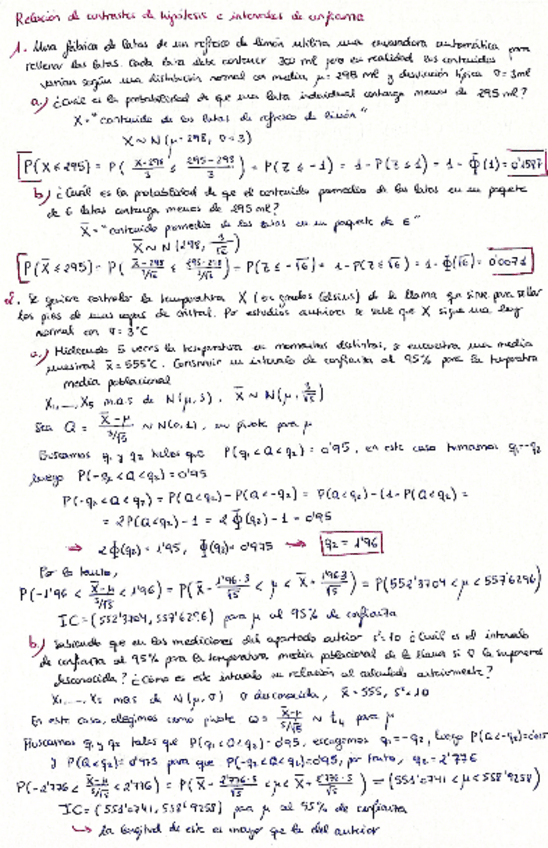 Relación de contrastes de hipótesis e intervalos de confianza
1. Una fábrica de latas de un refresco de limón utiliza una envasadora automática para
rellenar las latas. Cada lata debe contener 300 ml pero en realidad los contenidos
varían según una distribución normal con media μ=298 ml y desviación típica σ=3ml
a) ¿Cuál es la probabilidad de que una lata individual contenga menos de 295 ml?
X="contenido de las latas de refresco de limón"
X~N(μ=298, σ=3)
P(X≤295) = P((X-298)/3 ≤ (295-298)/3) = P(Z≤-1) = 1-P(Z≤1) = 1-Φ(1) = 0'1587
b) ¿Cuál es la probabilidad de que el contenido promedio de las latas en un paquete
de 6 latas contenga menos de 295 ml?
X̄="contenido promedio de las latas en un paquete de 6"
X̄~N(298, 3/√6)
P(X̄≤295) = P((X̄-298)/3/√6 ≤ (295-298)/3/√6) = P(Z≤-√6) = 1-P(Z≤√6) = 1-Φ(√6) = 0'0071
2. Se quiere controlar la temperatura X (en grados Celsius) de la llama que sirve para sellar
los pies de unas copas de cristal. Por estudios anteriores se sabe que X sigue una ley
normal con σ=3°C
a) Midiendo 5 veces la temperatura en momentos distintos, se encuentra una media
muestral x̄=555°C. Construir un intervalo de confianza al 95% para la temperatura
media poblacional
X₁,...,X₅ m.a.s de N(μ,3), X̄~N(μ, 3/√5)
Sea Q = (X̄-μ)/3/√5 ~ N(0,1), un pivote para μ
Buscamos q₁ y q₂ tales que P(q₁<Q<q₂)=0'95, en este caso tomamos q₁=-q₂
luego P(-q₂<Q<q₂)=0'95
P(-q₂<Q<q₂) = P(Q<q₂)-P(Q<-q₂) = P(Q<q₂)-(1-P(Q<q₂) =
= 2P(Q<q₂)-1 = 2Φ(q₂)-1 = 0'95
⇒ 2Φ(q₂)=1'95, Φ(q₂)=0'975 → q₂=1'96
Por lo tanto,
P(-1'96 < (X̄-μ)/3/√5 < 1'96) = P(X̄ - 1'96·3/√5 < μ < X̄ + 1'96·3/√5) = P(552'3704<μ<557'6296)
IC=(552'3704, 557'6296) para μ al 95% de confianza
b) Sabiendo que en las mediciones del apartado anterior s²=10 ¿Cuál es el intervalo
de confianza al 95% para la temperatura media poblacional de la llama si σ la suponemos
desconocida? ¿Cómo es este intervalo en relación al calculado anteriormente?
X₁,...,X₅ m.a.s de N(μ,σ) σ desconocida, x̄=555, s²=10
En este caso, elegimos como pivote ~ t₄ para μ
Buscamos q₁ y q₂ tales que P(q₁<Q<q₂)=0'95, escogemos q₁=-q₂, luego
y P(Q<q₂)=0'975 para que P(-q₂<Q<q₂)=0'95, por tanto, q₂=2'776
P(-2'776 < < 2'776) = = (551'0741<μ<558'9258)
IC=(551'0741, 558'9258) para μ al 95% de confianza
↳ La longitud de este es mayor que la del anterior